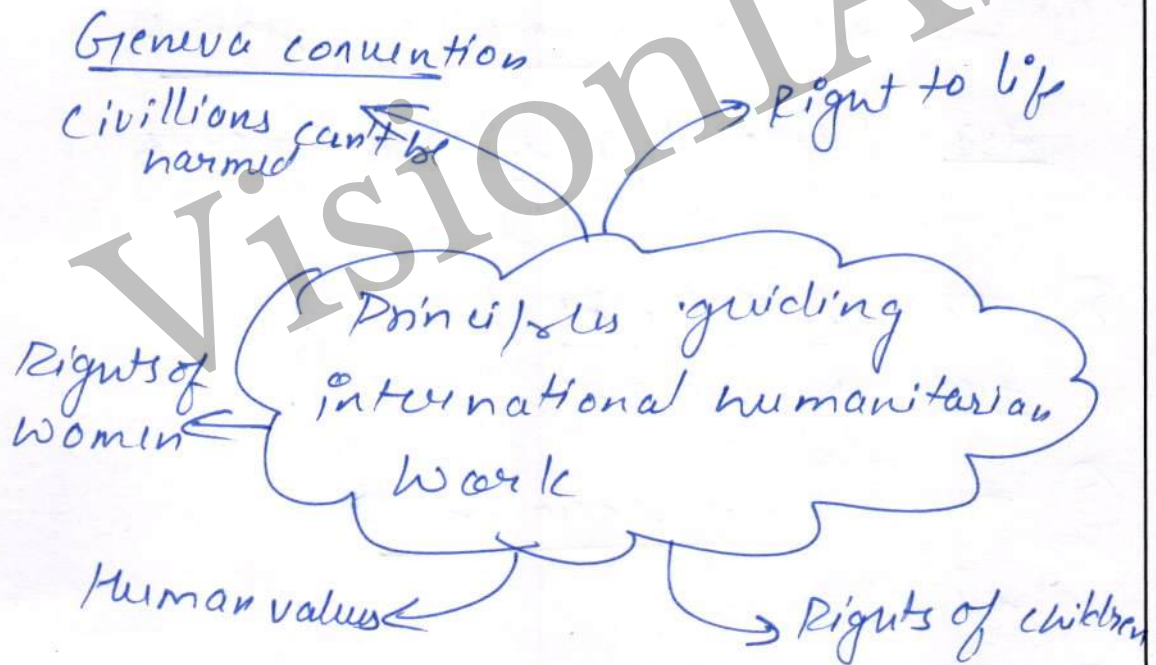 Geneva convention
Civillions can't be
harmed
Right to life
Principles guiding
international humanitarian
work
Rights of
women
Human values
Rights of children
VisionIA